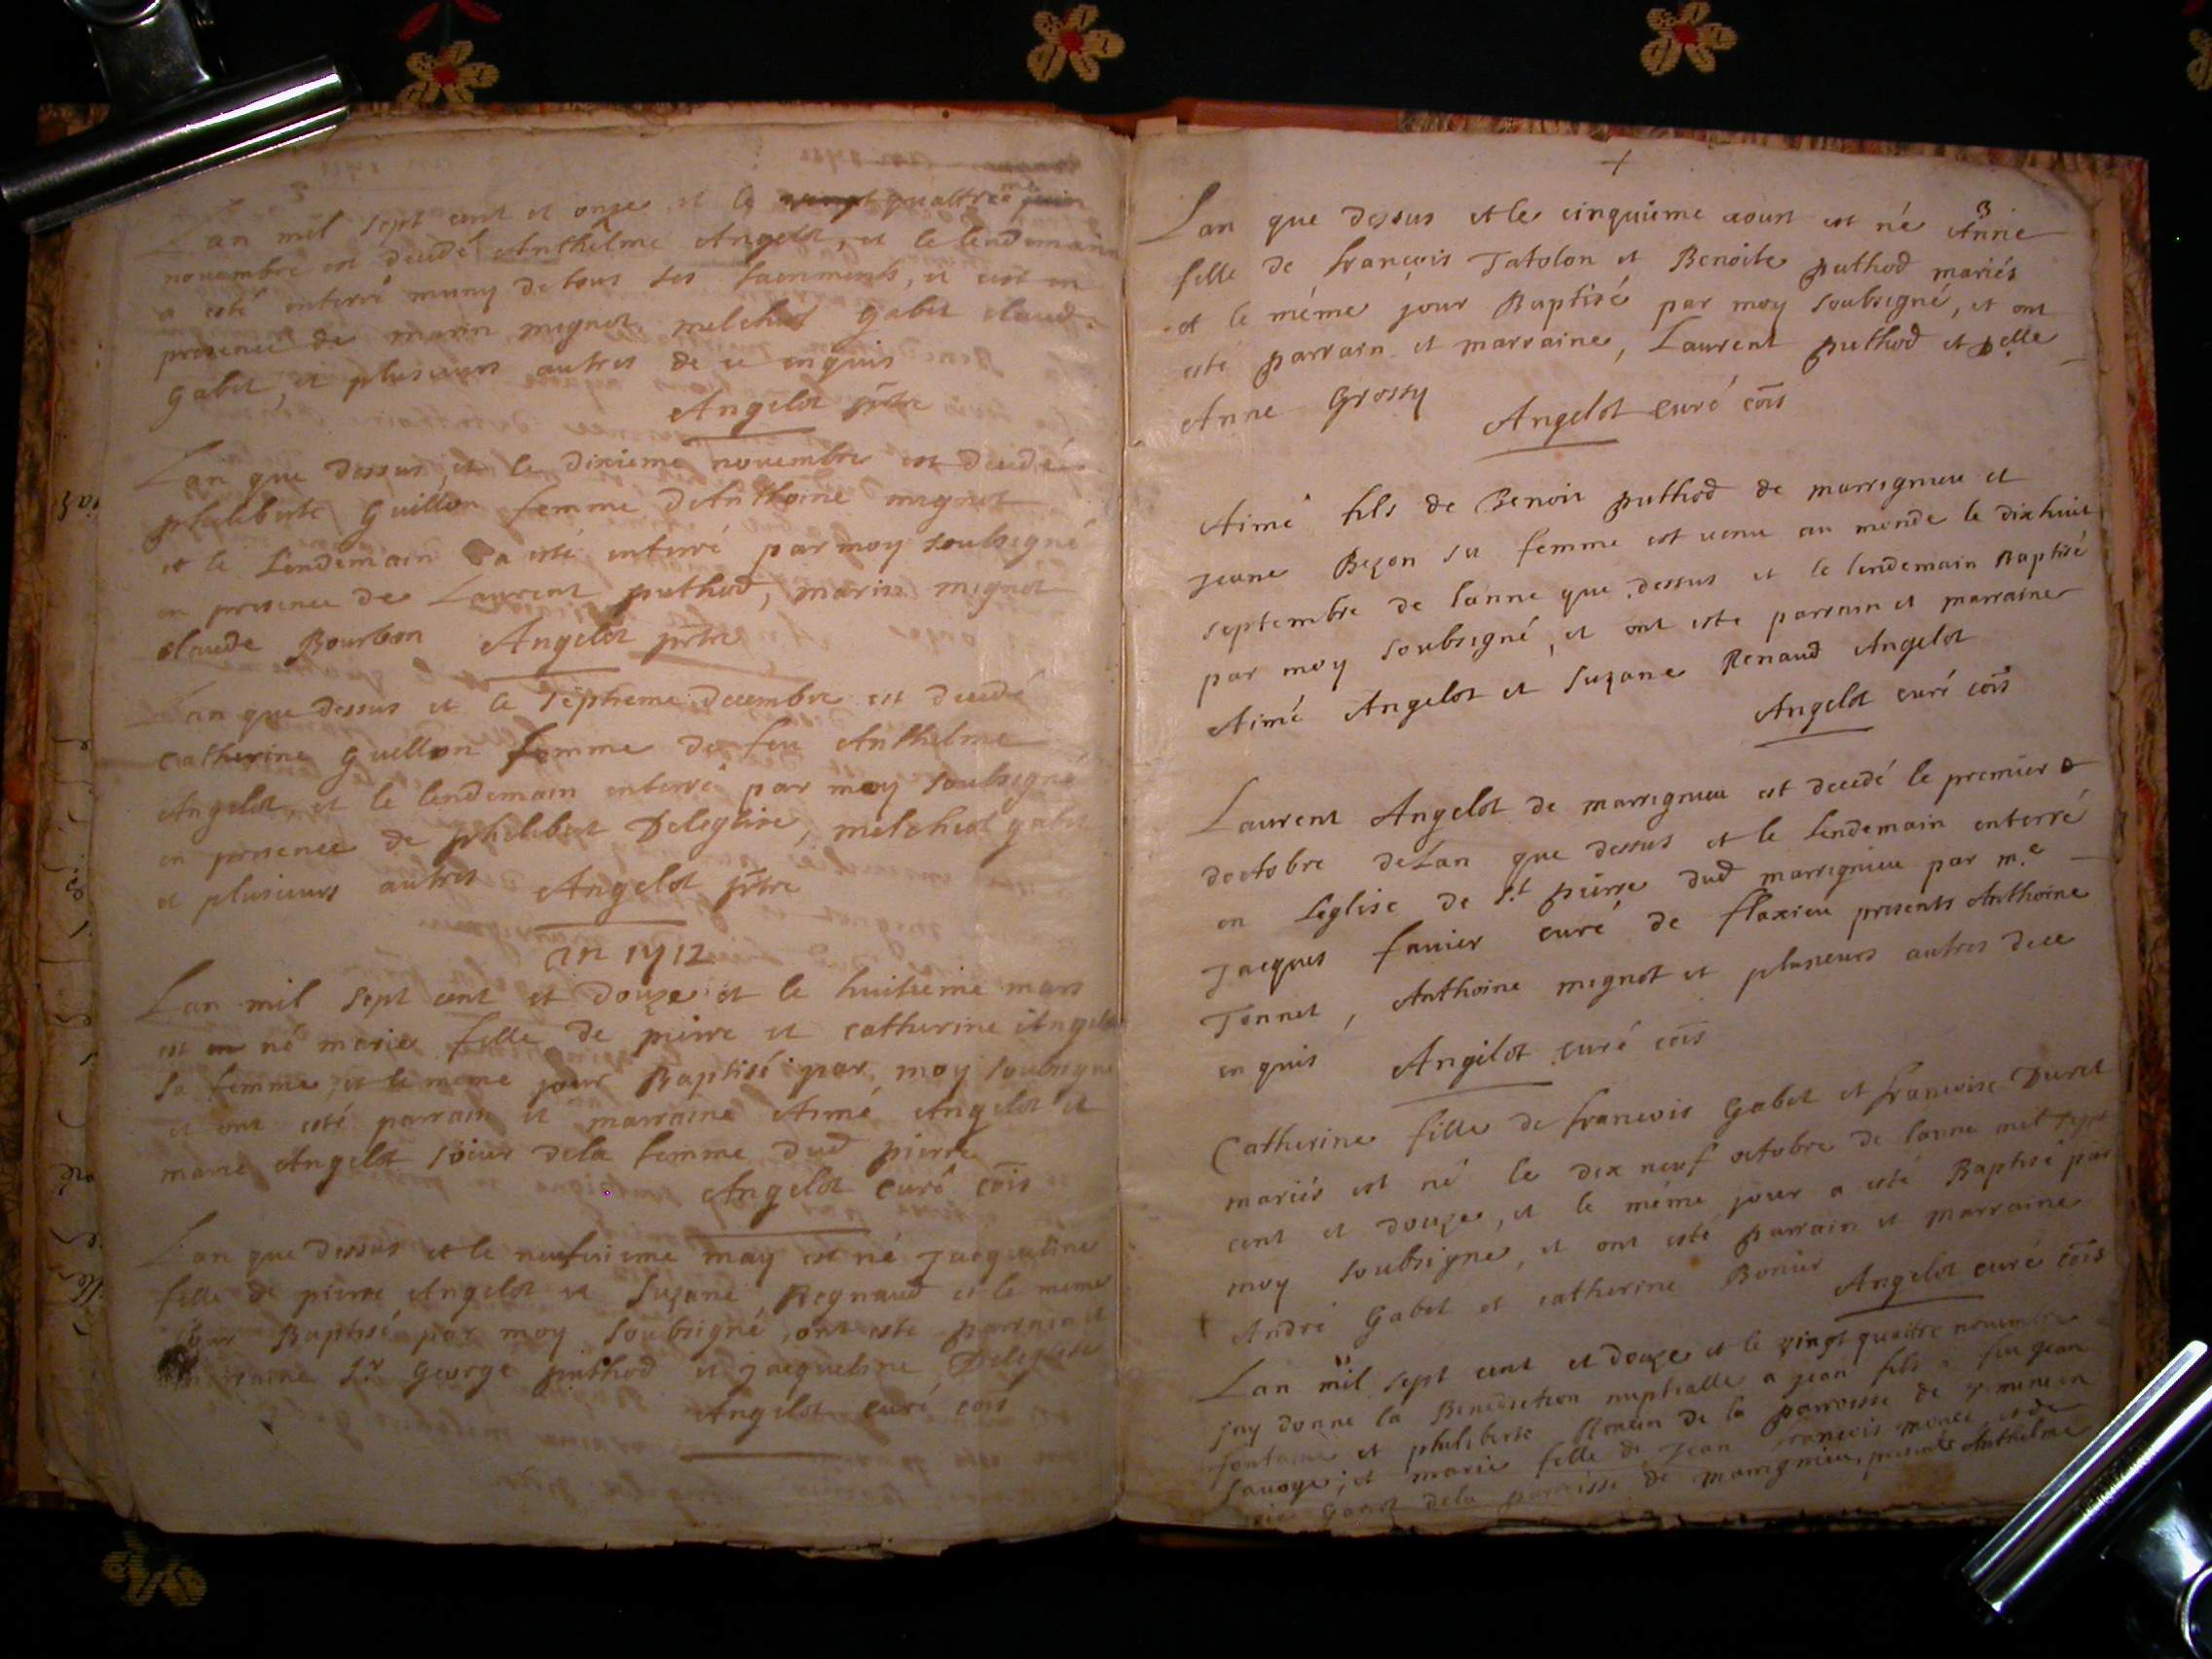 Lan mil sept cent et onze et le vingt quattre me juin
nouembre est decedé Anthelme Angelot, et le lendemain
a esté enterré muny de tous ses sacrements, et cest en
presence de marin mignot melchiot gabet claude
gabet, et plusieurs autres de ce enquis
Angelot ptre
Lan que dessus, et le dixieme nouembre est decedé
philiberte Guillon femme d'Anthoine mignot
et le Lendemain a esté enterré par moy soubsigné
en presence de Laurent puthod, marin mignot
claude Bourbon Angelot ptre
Lan que dessus et le septieme decembre est decedé
Catherine guillon femme de feu Anthelme
Angelot, et le lendemain enterré par moy soubsigné
en presence de philibert Deleglise, melchiot gabet
et plusieurs autres Angelot ptre
an 1712
Lan mil sept cent et douze et le huitieme mars
est né marie fille de pierre et catherine Angelot
sa femme, et le meme jour Baptisé par moy soubsigné
et ont esté parrain et marraine Aimé Angelot et
marie Angelot soeur dela femme dud pierre
Angelot curé cõis
Lan que dessus et le neufuieme may est né Jacqueline
fille de pierre Angelot et Suzane Regnaud et le meme
jour Baptisé par moy soubsigné, ont esté parrain et
marraine Sr George puthod et jacqueline Deleglise
Angelot curé cõis
3
Lan que dessus et le cinquieme aoust est né Anne
fille de francois Tatolon et Benoite puthod mariés
et le méme jour Baptisé par moy soubsigné, et ont
esté parrain et marraine, Laurent puthod et Delle
Anne Grossy Angelot curé cõis
Aimé fils de Benoit puthod de marrignieu et
Jeane Bezon sa femme est uenu au monde le dixhuit
septembre de lanne que dessus et le lendemain Baptisé
par moy soubsigné, et ont esté parrain et marraine
Aimé Angelot et Suzane Renaud Angelot
Angelot curé cõis
Laurent Angelot de marrignieu est decedé le premier
doctobre deLan que dessus et le Lendemain enterré
en Leglise de St pierre dud marrignieu par m.e
Jacques fauier curé de flaxieu presents Anthoine
Tonnet, Anthoine mignot et plusieurs autres dece
enquis Angelot curé cõis
Catherine fille de francois Gabet et francoise Duret
mariés est né le dix neuf octobre de lanne mil sept
cent et douze, et le méme jour a esté Baptisé par
moy soubsigne, et ont esté parrain et marraine
André Gabet et catherine Bonier
Angelot curé cõis
Lan mil sept cent et douze et le vingt quattre nouembre
jay donne la Benediction nuptialle a jean fils feu jean
fontaine et philiberte de la parroisse de
Sauoye; et marie fille de Jean francois et de
dela parroisse de marrignieu, presents Anthelme